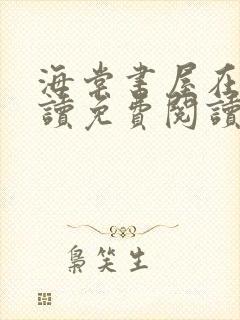 海棠書屋在
讀免費閱讀
梟笑生